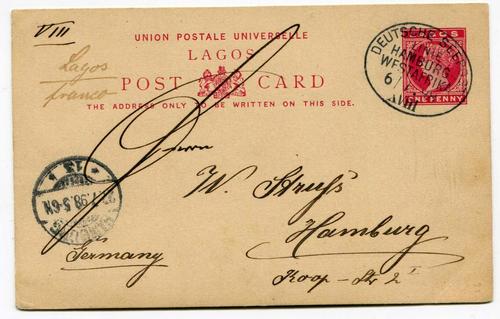 VIII
UNION POSTALE UNIVERSELLE
LAGOS
POST CARD
THE ADDRESS ONLY TO BE WRITTEN ON THIS SIDE.
Lagos
franco
LAGOS
ONE PENNY
DEUTSCHE SEE
LINIE
HAMBURG
WESTAFRIKA
6/
XVIII
Herrn
W. Struss
Hamburg
Koop-Str 2I
Germany
* 1f *
.98.5-6N